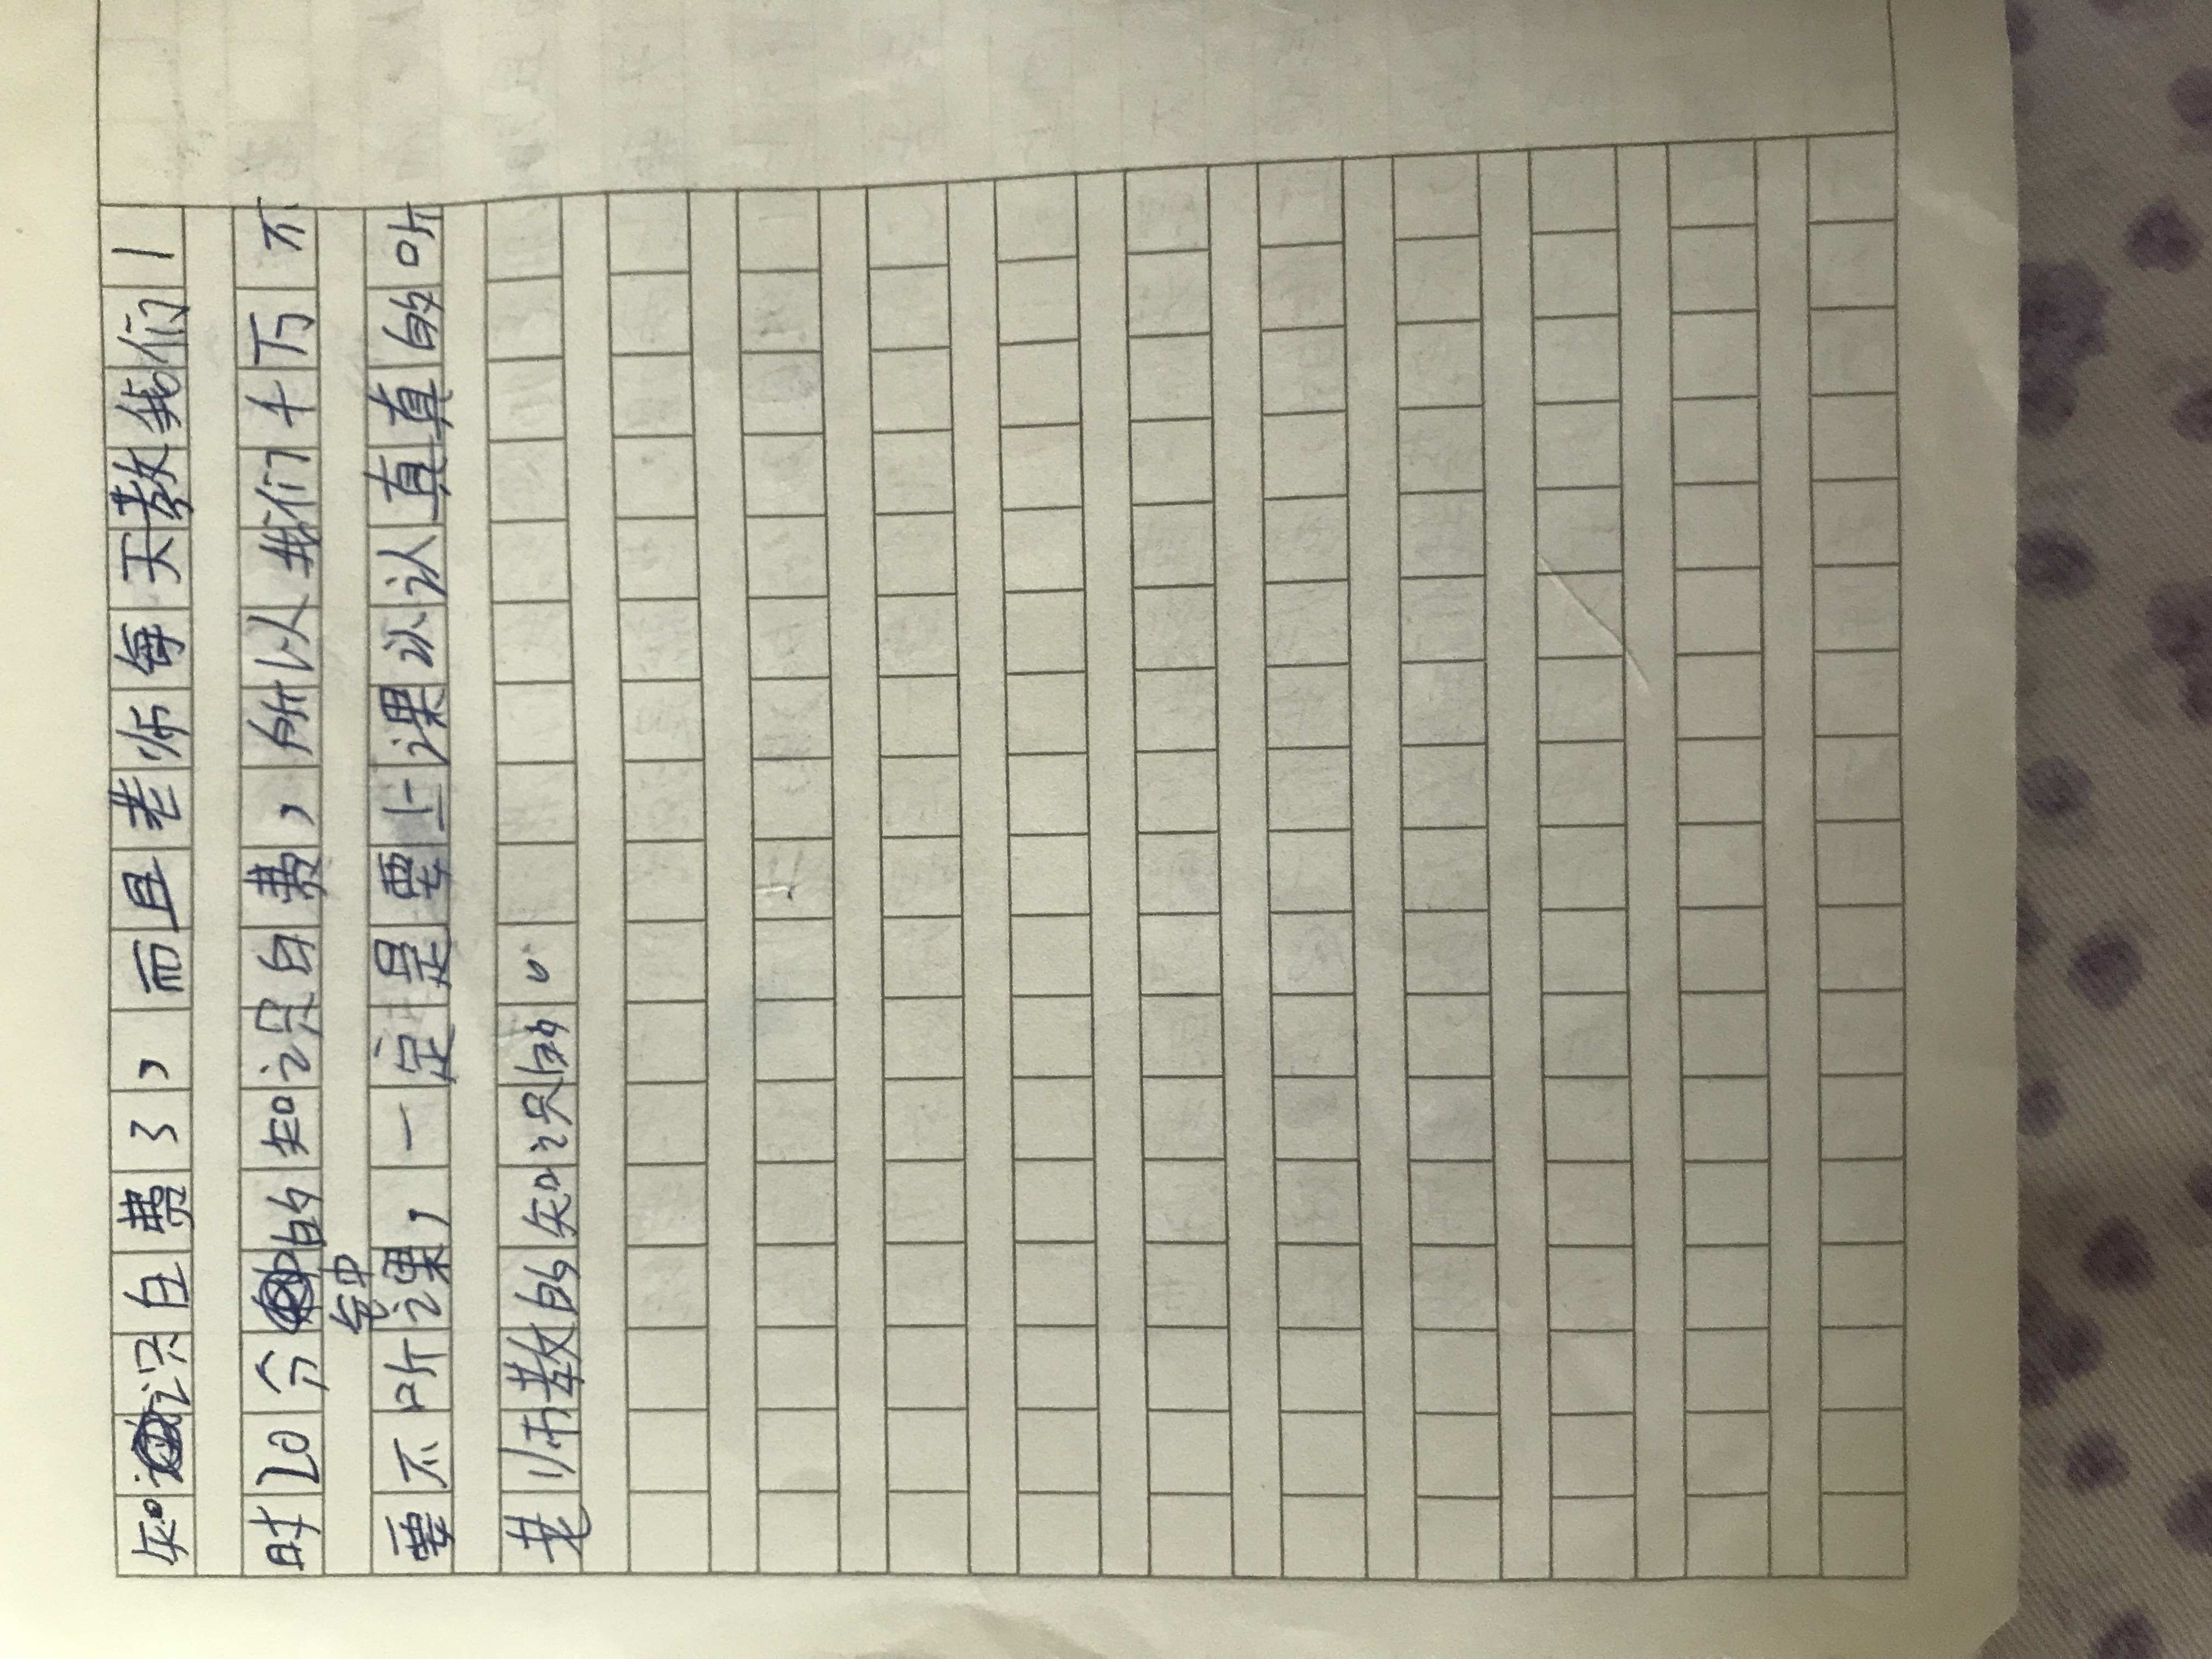 知识白费了，而且老师每天教我们1
时20分钟的知识白费，所以我们千万不
要不听课，一定是要上课认认真真的听
老师教的知识的。